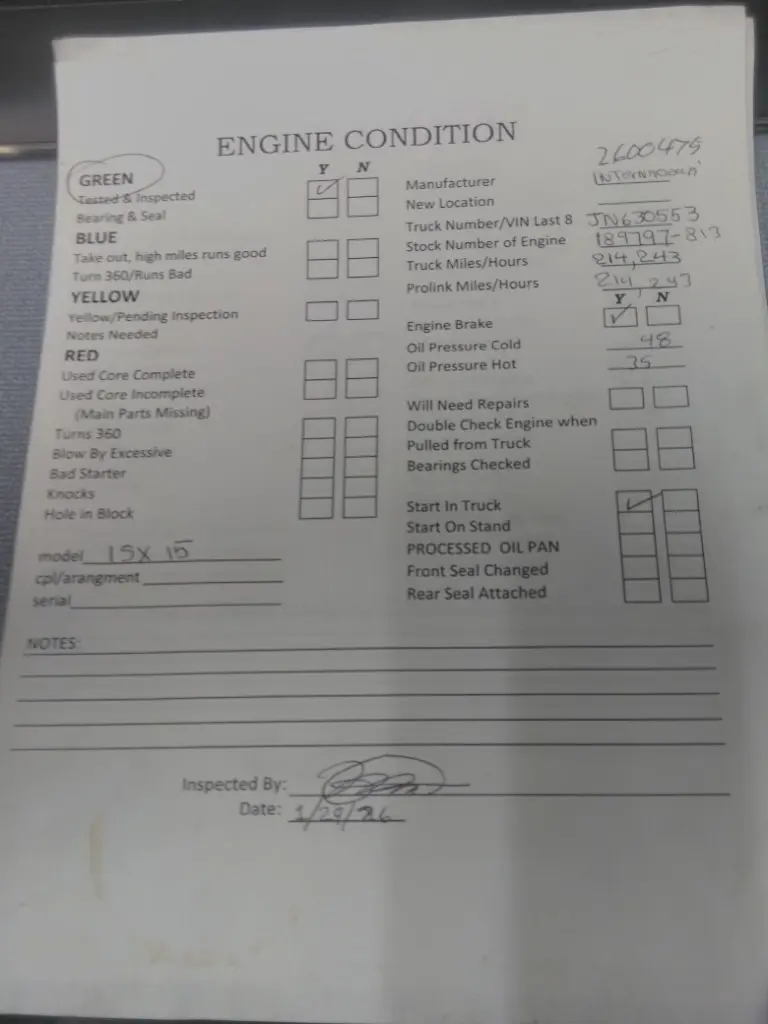 ENGINE CONDITION
2600475
Y N
GREEN
Tested & Inspected
Bearing & Seal
BLUE
Take out, high miles runs good
Turn 360/Runs Bad
YELLOW
Yellow/Pending Inspection
Notes Needed
RED
Used Core Complete
Used Core Incomplete
(Main Parts Missing)
Turns 360
Blow By Excessive
Bad Starter
Knocks
Hole in Block
model 15X 15
cpl/arangment
serial
Manufacturer
New Location
Truck Number/VIN Last 8 JN630553
Stock Number of Engine 189797-813
Truck Miles/Hours 214,243
Prolink Miles/Hours 214,243
Y N
Engine Brake
Oil Pressure Cold 48
Oil Pressure Hot 35
Will Need Repairs
Double Check Engine when
Pulled from Truck
Bearings Checked
Start In Truck
Start On Stand
PROCESSED OIL PAN
Front Seal Changed
Rear Seal Attached
NOTES:
Inspected By:
Date: 1/29/26